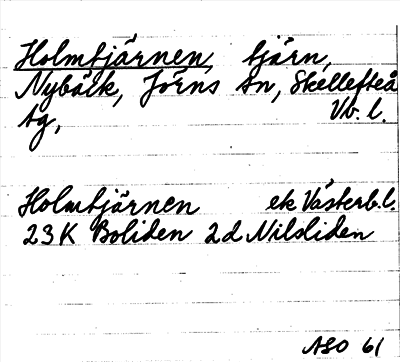 Holmtjärnen, tjärn,
Nybälk, Jörns sn, Skellefteå
tg, Vb. l.
Holmtjärnen ek Västerb.l.
23K Boliden 2d Nilsliden
ASO 61